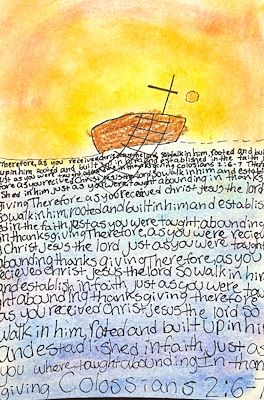 Therefore, as you received Christ Jesus the lord, so walk in him, rooted and built
up in him rooted and built up in him and established in the faith just
as you were taught abounding in thanksgiving colossians 2:6-7 There
fore as you received Christ Jesus the lord so walk in him and establi
shed in him just as you were taught abounding in thanks
giving Therefore as you received christ jesus the lord
so walk in him, rooted and built in him and establis
ed in the faith just as you were taught abounding
in thanksgiving Therefore, as you were recieve
Christ jesus the lord, just as you were taught
abounding thanks giving Therefore, as you
recieved christ jesus the lord so walk in him
and establish in faith just as you were tau
ght abounding thanksgiving therefore
as you received christ jesus the lord so
walk in him, rooted and built Up in him
and established in faith, just as
you where taught abounding In than
giving Colossians 2:6-7